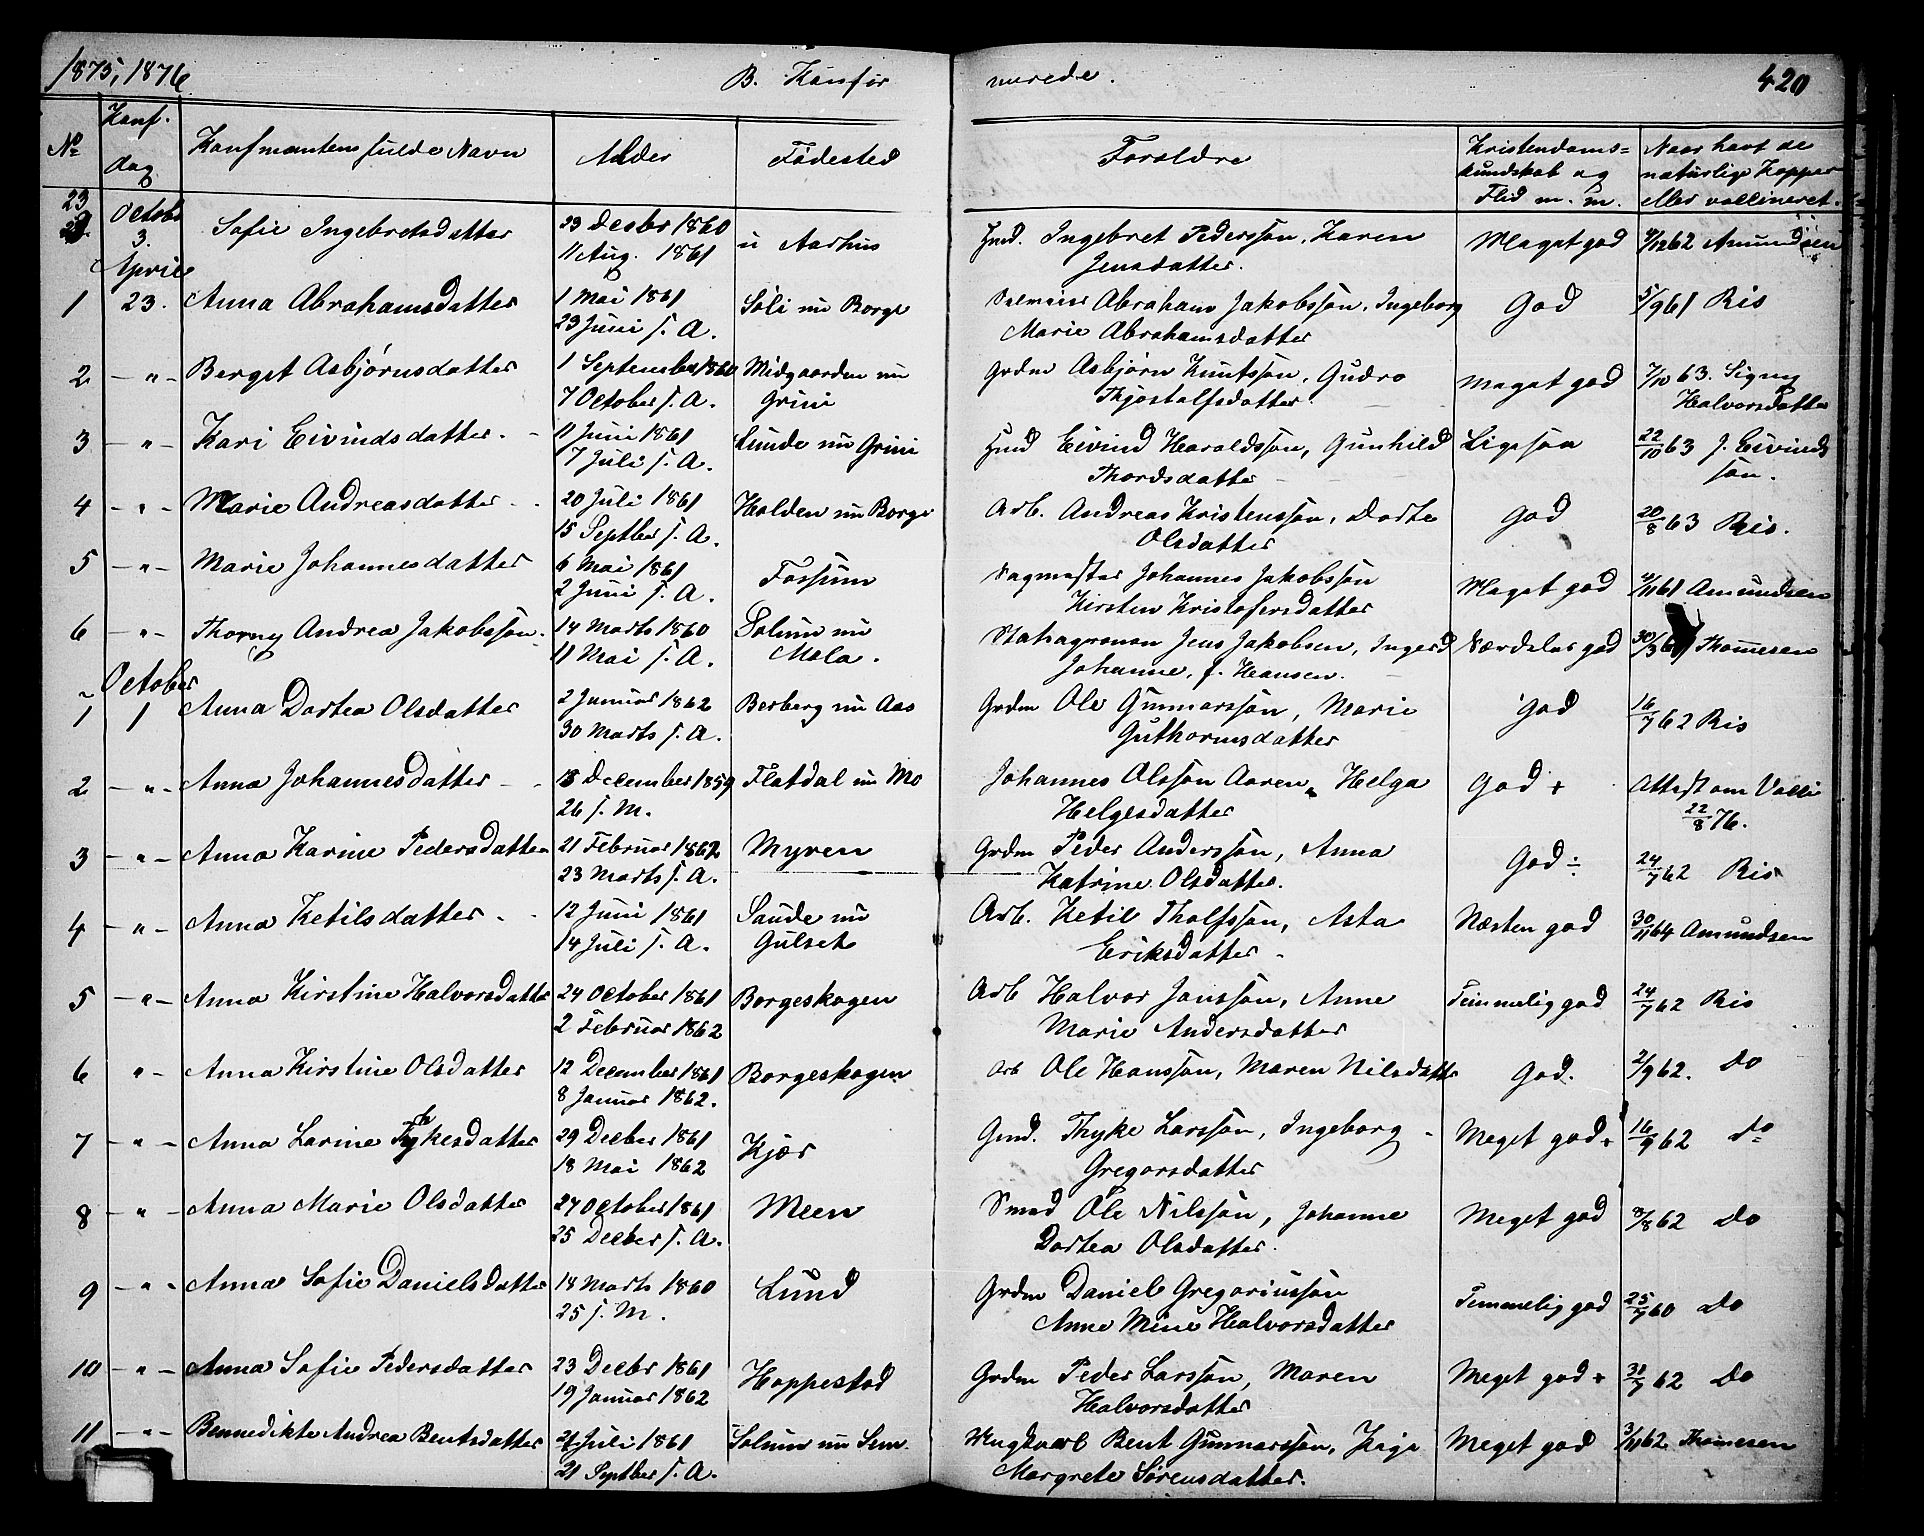 1875, 1876
B. Konfir
merede.
420
No
Konf. dag
Konfirmantens fulde Navn
Alder
Fødested
Forældre
Kristendoms= kundskab og Flid m. m.
Naar havt de naturlige Kopper eller vaccineret.
23 October 3. Sofie Ingebretsdatter 23 Decbr 1860 Aarhus Ingebret Pedersson, Karen Meget god 4/12 62 Amundsen
11 Aug. 1861 Jensdatter.
April
1 23. Anna Abrahamsdatter 1 Mai 1861 Soli nu Borge Abraham Jakobsson, Ingeborg God 5/9 61 Ris
23 Juni s. A. Marie Abrahamsdatter
2 — " — Berget Asbjørnsdatter 1 September 1860 Midgaarden nu Grdm Asbjørn Knutsson, Gudro Meget god 7/10 63. Signy
7 October s. A. Grini Thjostolfsdatter. Halvorsdatter
3 — " — Kari Eivindsdatter. 11 Juni 1861 Lunde nu Grini Hmd Eivind Haraldsson, Gunhild Ligesson 22/10 63 J. Eivinds
7 Juli s. A. Thordsdatter son.
4 — " — Marie Andreasdatter 20 Juli 1861 Holden nu Borge Arb. Andreas Kristensson, Dorte God 20/8 63 Ris.
15 Septber s. A. Olsdatter
5 — " — Marie Johannesdatter 6 Mai 1861 Fossum Sagmester Johannes Jakobsson Meget god 4/11 61 Amundsen
2 Juni s. A. Kirsten Kristofersdatter
6 — " — Thorny Andrea Jakobsson. 14 Marts 1860 Solum nu Jens Jakobsen, Ingerd Særdeles god 30/3 Thomesen
11 Mai s. A. Mæla. Johanne, f. Hansen.
October
1 1 Anna Dortea Olsdatter 2 Januar 1862 Berberg nu Aas Grdm Ole Gunnarsson, Marie God 16/7 62 Ris
30 Marts s. A. Guthormsdatter
2 — " — Anna Johannesdatter 18 December 1859 Flatdal nu Mo Johannes Olsson Aaren, Helga God + Attest om Vacci
26 s. M. Helgesdatter 22/8 76.
3 — " — Anna Karine Pedersdatter 21 Februar 1862 Myren Grdm Peder Andersson, Anna God ÷ 24/7 62 Ris
23 Marts s. A. Katrine Olsdatter.
4 — " — Anna Ketilsdatter 12 Juni 1861 Saude nu Arb. Ketil Tholfsson, Asta Næsten god 30/11 64 Amundsen
14 Juli s. A. Gulset Eriksdatter
5 — " — Anna Kirstine Halvorsdatter 24 October 1861 Borgeskogen Arb Halvor Jonsson, Anne Temmelig god 24/7 62 Ris
2 Februar 1862 Marie Andersdatter
6 " — Anna Kirstine Olsdatter 12 December 1861 Borgeskogen Arb Ole Hansson, Maren Nilsdatter God. 2/9 62. Do
8 Januar 1862.
7 — " — Anna Larine Thykesdatter 29 Decber 1861 Kjær Gmd. Thyke Larsson, Ingeborg Meget god + 16/9 62 Do
18 Mai 1862 Gregorsdatter
8 — " — Anna Marie Olsdatter 27 October 1861 Meen Smed Ole Nilsson, Johanne Meget god 8/8 62 Do
25 Decber s. A. Dortea Olsdatter.
9 — " — Anna Sofie Danielsdatter 14 Marts 1860 Lund Grdm Daniel Gregoriusson Temmelig god 25/7 60 Do
25 s. M. Anne Mine Halvorsdatter
10 — " — Anna Sofie Pedersdatter 23 Decbr 1861 Hoppestad Grdm Peder Larsson, Maren Meget god + 31/7 62 Do
19 Januar 1862 Halvorsdatter
11 — " — Bennedikte Andrea Bentsdatter 21 Juli 1861 Solum nu Sem. Bent Gunnarsson, Meget god 3/11 62 Thomesen
21 Septber s. A. Margrete Sørensdatter.